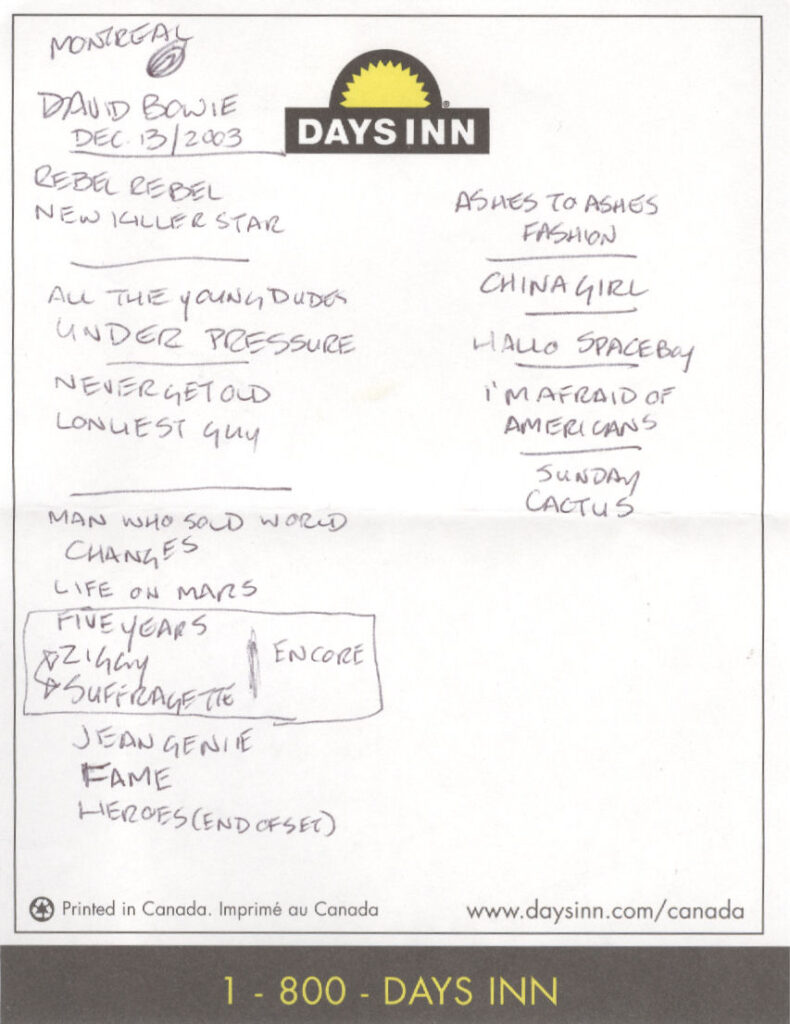 MONTREAL
DAVID BOWIE
DEC. 13/2003
DAYS INN
®
REBEL REBEL
NEW KILLER STAR
ALL THE YOUNG DUDES
UNDER PRESSURE
NEVER GET OLD
LONLIEST GUY
MAN WHO SOLD WORLD
CHANGES
LIFE ON MARS
FIVE YEARS
ZIGGY
SUFFRAGETTE
ENCORE
JEAN GENIE
FAME
HEROES (END OF SET)
ASHES TO ASHES
FASHION
CHINA GIRL
HALLO SPACEBOY
I'M AFRAID OF
AMERICANS
SUNDAY
CACTUS
Printed in Canada. Imprimé au Canada
www.daysinn.com/canada
1 - 800 - DAYS INN